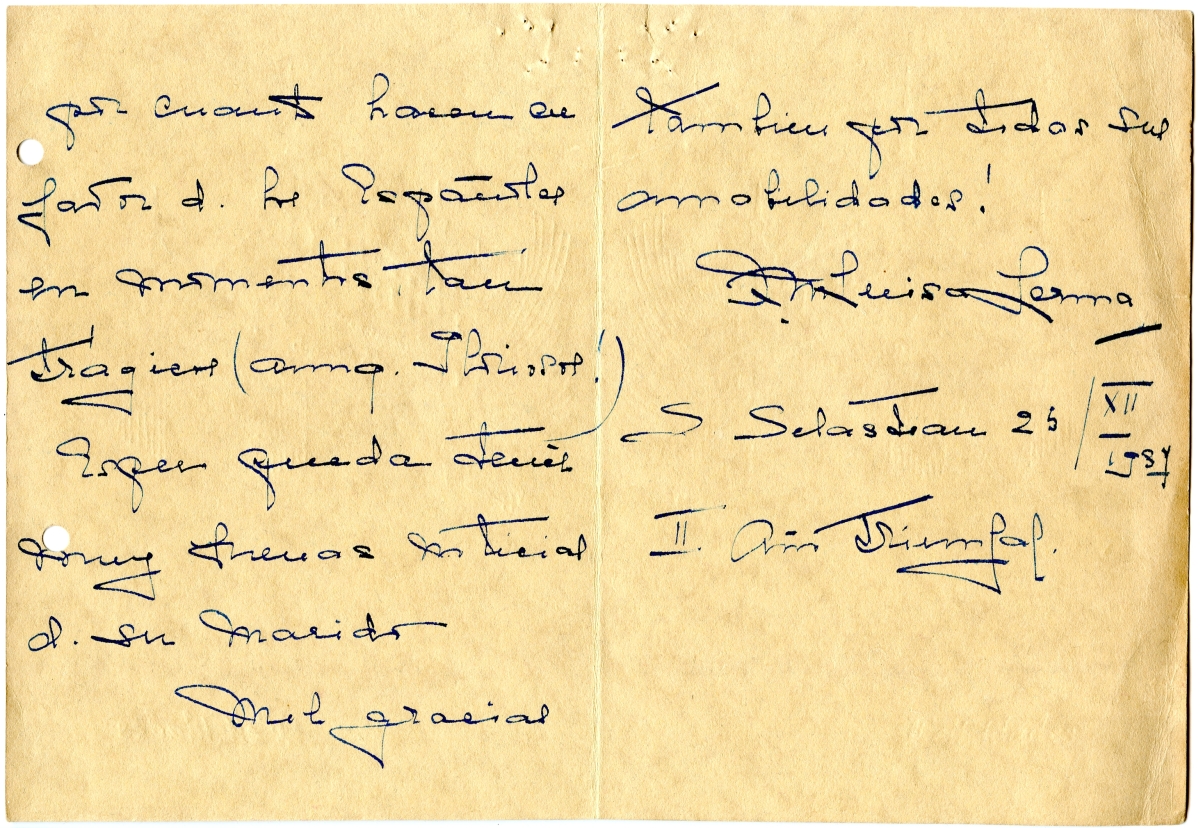 por cuanto hacen en
favor d. los Españoles
en momentos tan
trágicos (aunq. Gloriosos!)
Espero pueda tener
muy buenas noticias
d. su marido
Mil gracias
también por todas sus
amabilidades!
Mª Luisa Lerma
S Sebastian 25/XII
1937
II. Año Triunfal.